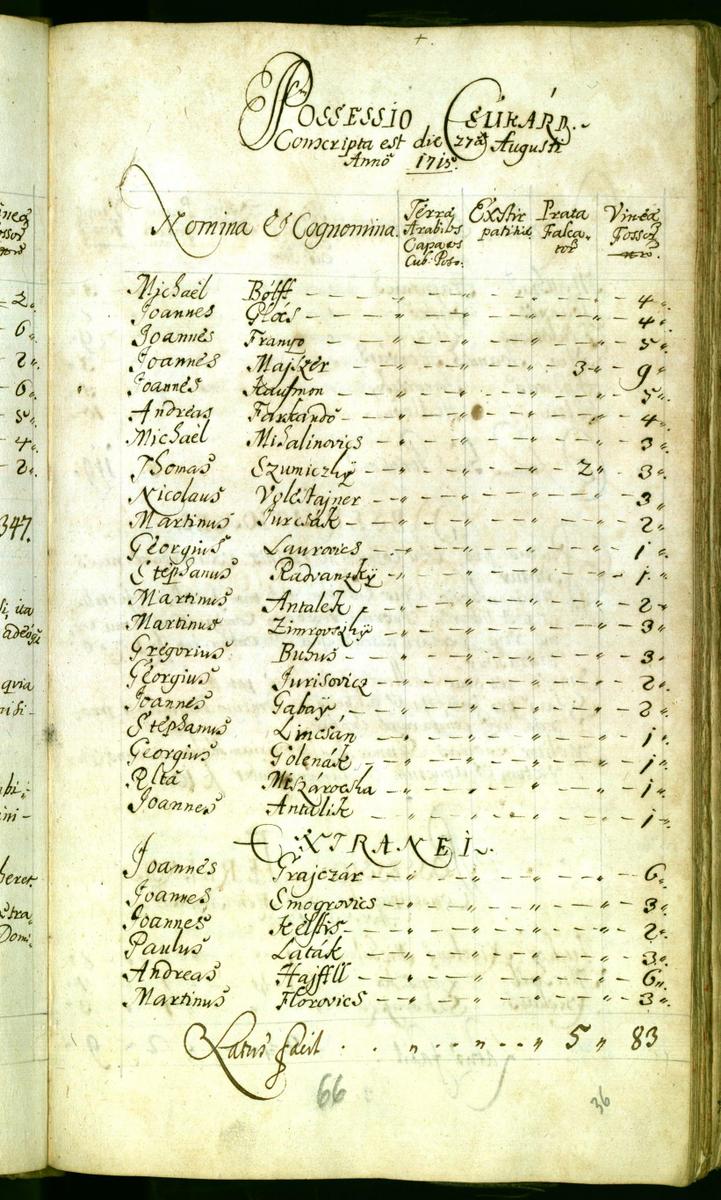 Possessio Csukárd.
Conscripta est die 27a Augusti
Anno 1715.
Nomina & Cognomina
Terra Arabilis Capaces Cub: Poso:
Exstirpatitiae
Prata Falcator
Vinea Fossor
Michaël Bólff — 4
Joannes Gloos — 4
Joannes Franyo — 5
Joannes Majszer — 3 9
Joannes Kaufmon — 5
Andreas Farkando — 4
Michaël Mihalinovics — 3
Thomas Szumiczhÿ — 2 3
Nicolaus Volestajner — 3
Martinus Jurcsák — 2
Georgius Laurovics — 1
Stephanus Radvanzkÿ — 1
Martinus Antalek — 2
Martinus Zimrovszkÿ — 3
Gregorius Busus — 3
Georgius Jurisovicz — 2
Joannes Gabaÿ — 2
Stephanus Lincsán — 1
Georgius Golenák — 1
Rlta Miszárocska — 1
Joannes Antalik — 1
Extranei
Joannes Grajczár — 6
Joannes Smogrovics — 3
Joannes Kellis — 2
Paulus Laták — 3
Andreas Hajffll — 6
Martinus Florovics — 3
Latus facit 5 83
66
36
2
6
2
6
5
4
2
347.
si, ita
adeoq;
quia